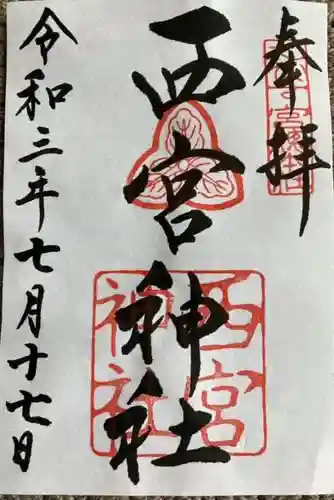 奉拝
西宮神社
西宮
神社
令和三年七月十七日